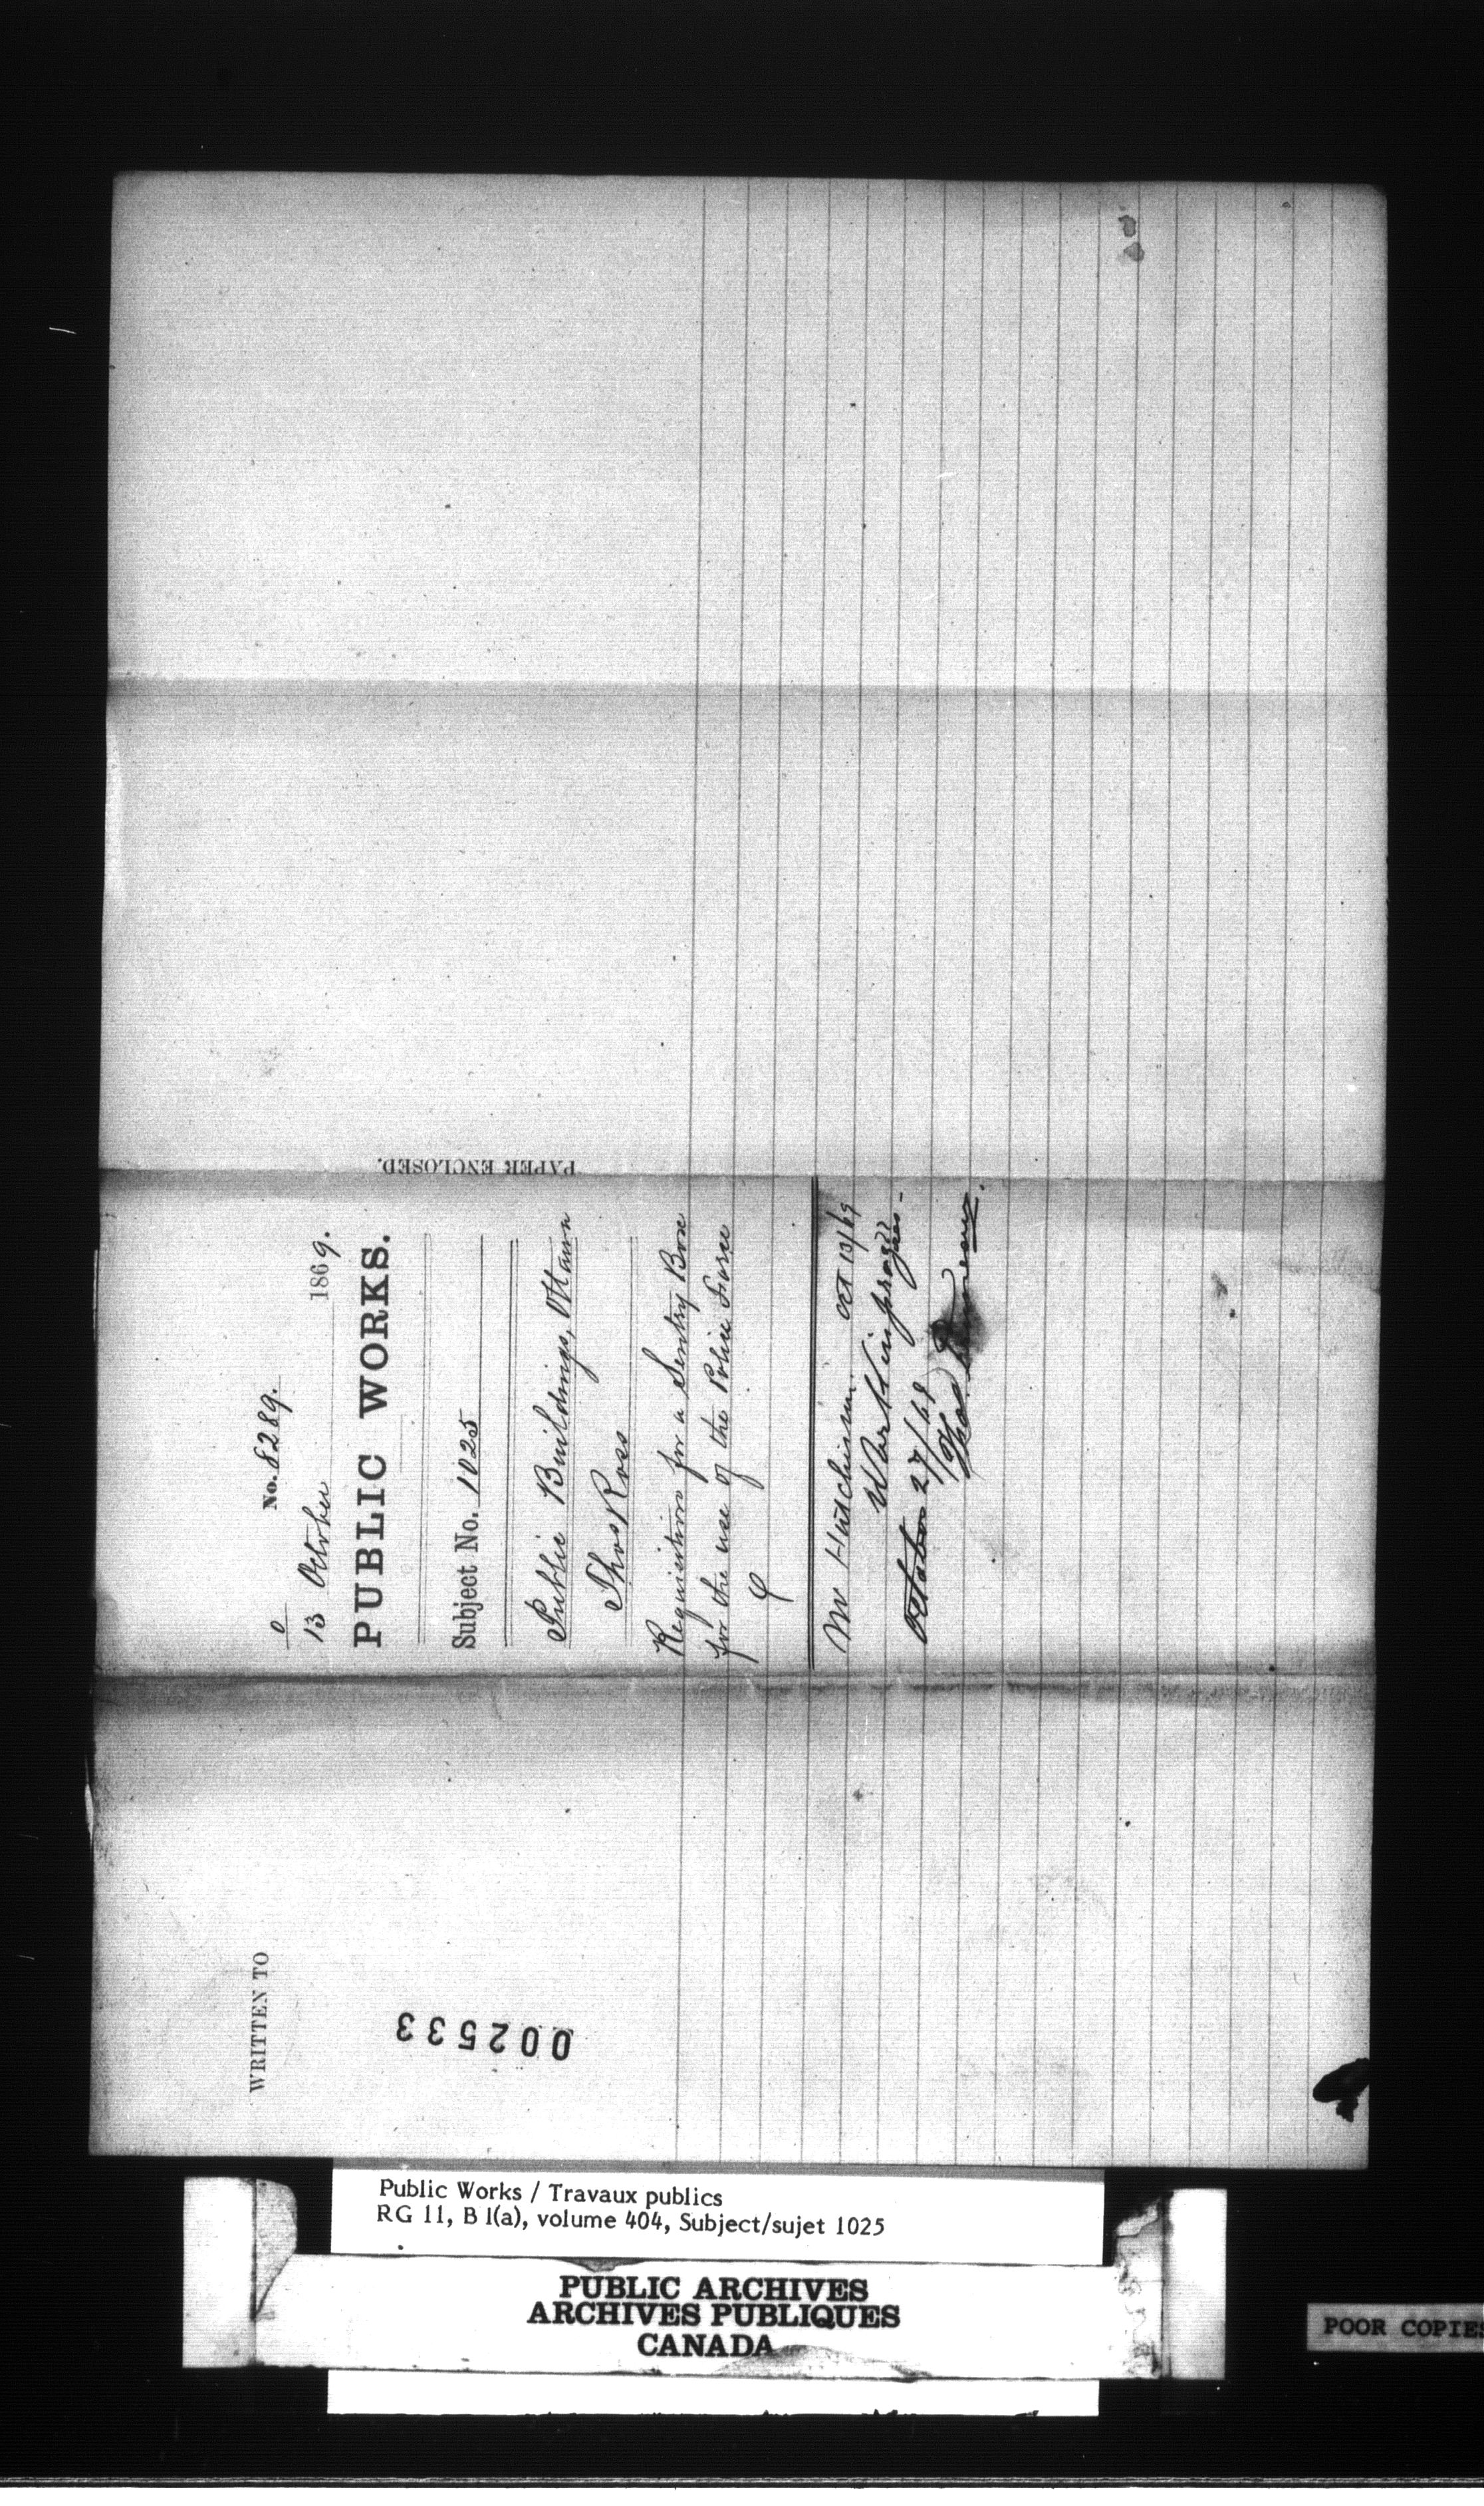 No. 8289.
13 October 1869.
PUBLIC WORKS.
Subject No. 1025
Public Buildings, Ottawa
Thos Ross
Requisition for a Sentry Box
for the use of the Police Force
Mr Hutchison Oct 13/69
Work in progress -
October 27/69
PAPER ENCLOSED.
WRITTEN TO
002533
Public Works / Travaux publics
RG 11, B 1(a), volume 404, Subject/sujet 1025
PUBLIC ARCHIVES
ARCHIVES PUBLIQUES
CANADA
POOR COPIES